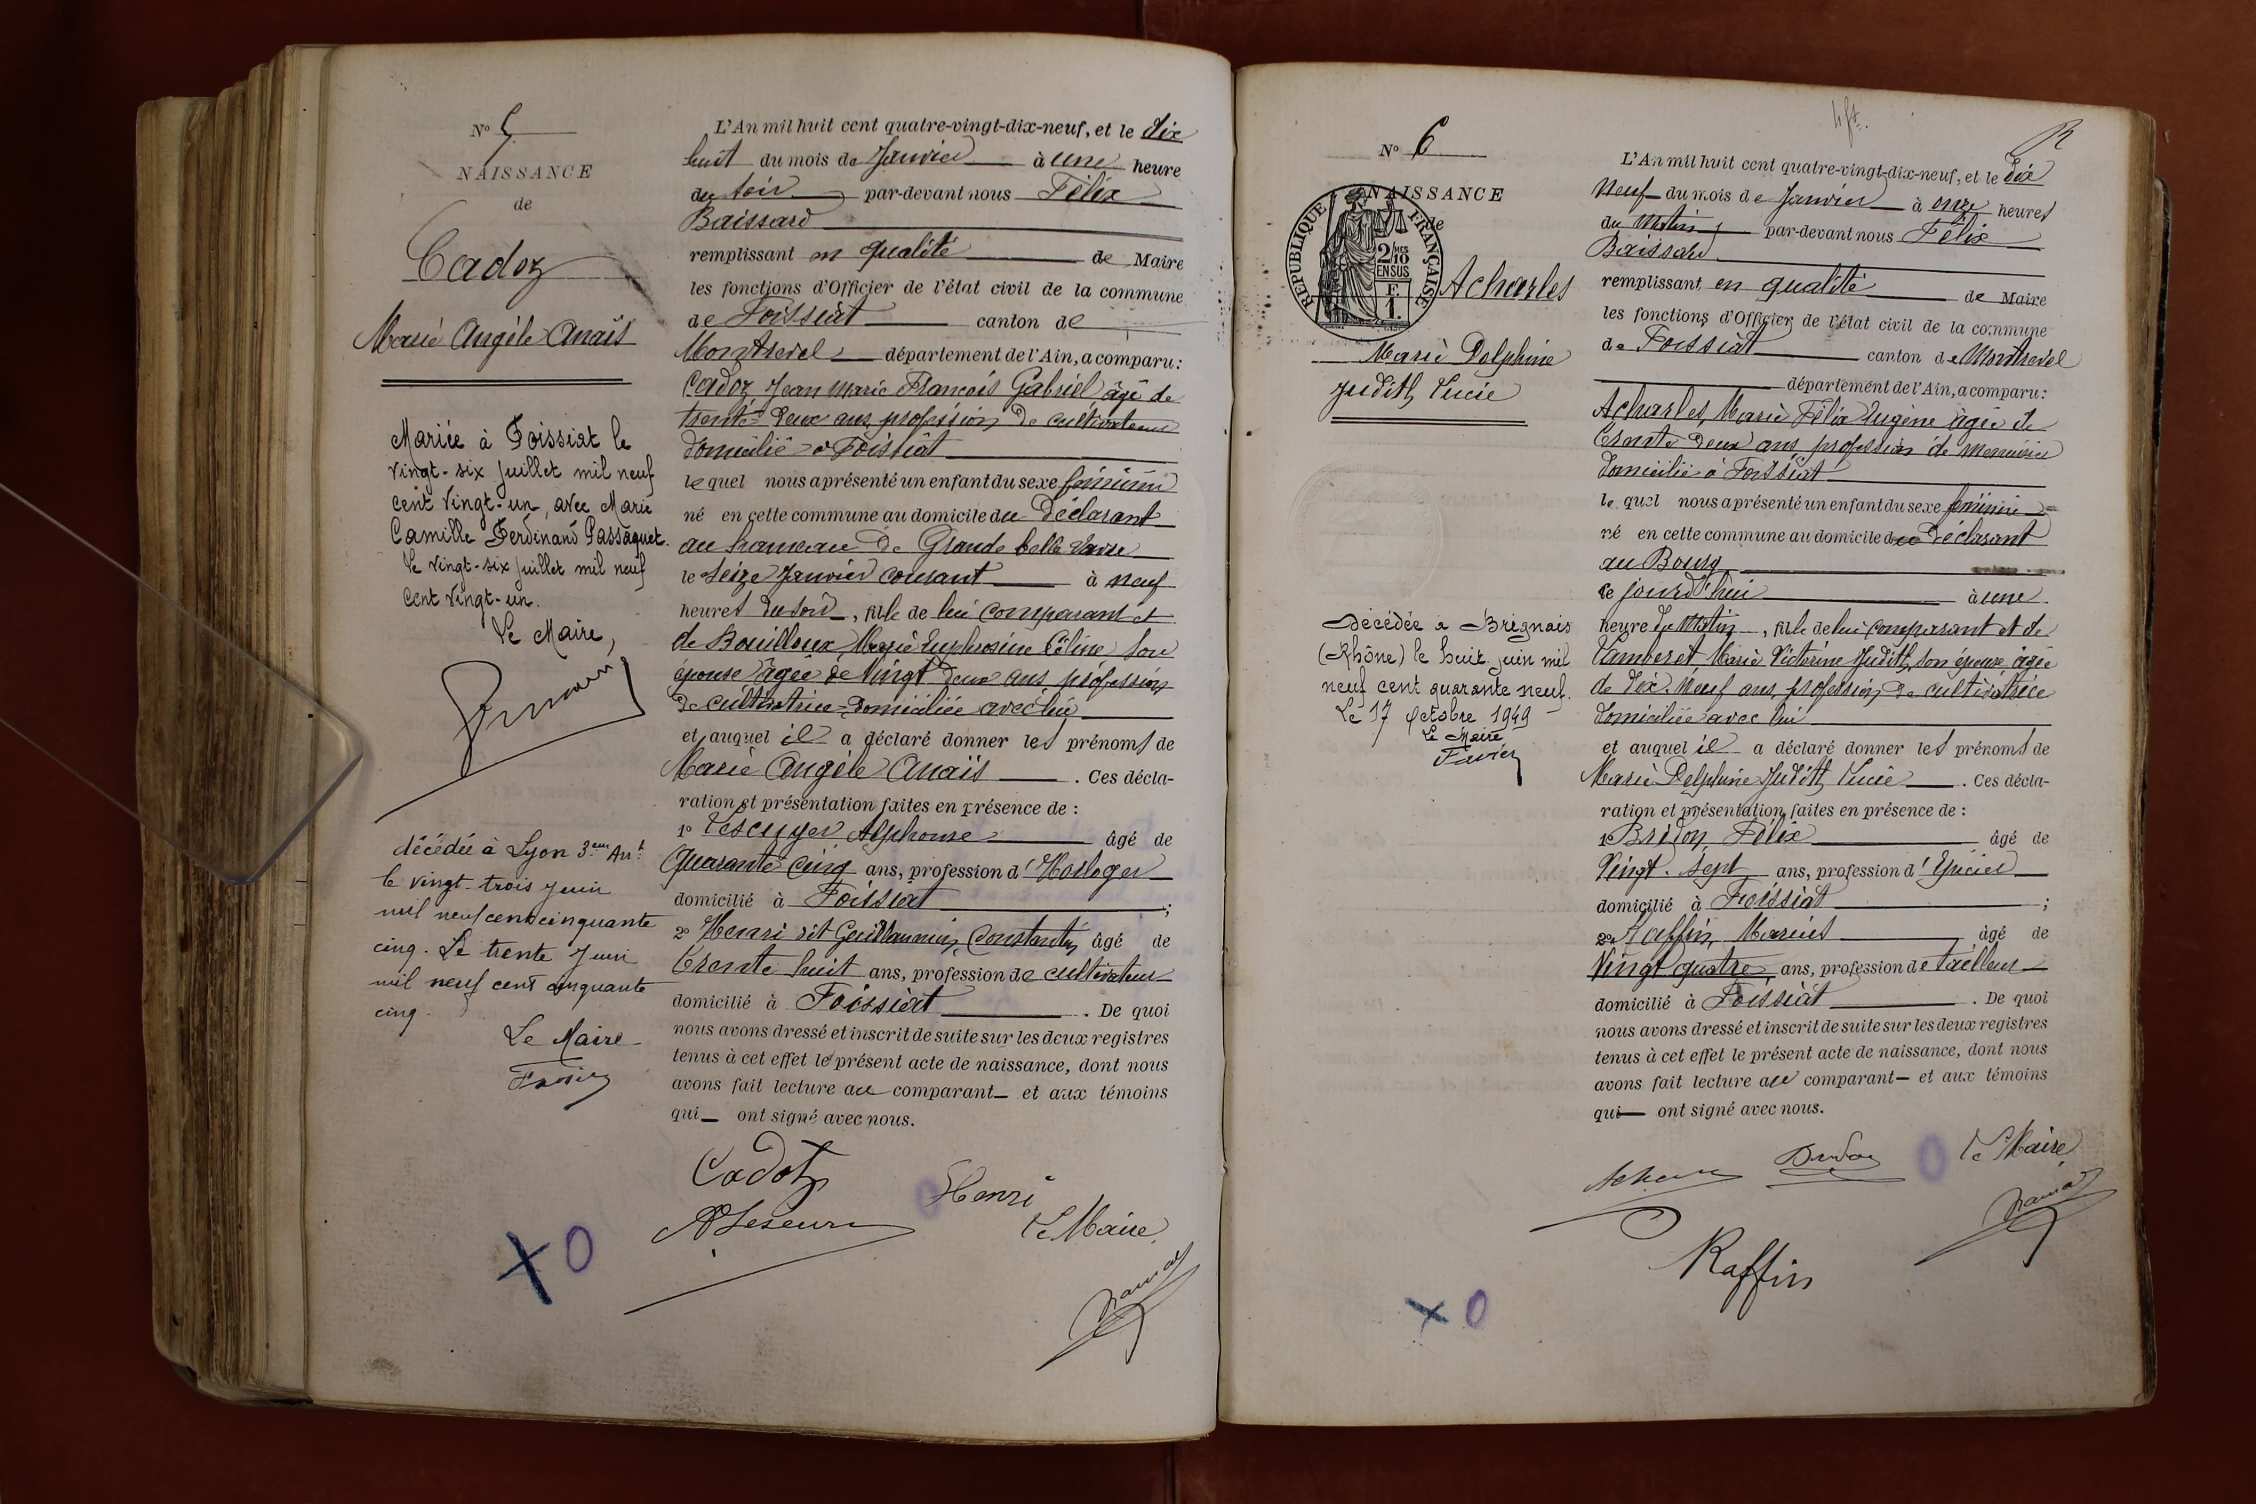 N° 5
NAISSANCE
de
Cadoz
Marie Angèle Anaïs
Mariée à Foissiat le
vingt-six Juillet mil neuf
cent vingt-un, avec Marie
Camille Ferdinand Passaquet.
Le vingt-six Juillet mil neuf
cent vingt-un.
Le Maire,
décédée à Lyon 3eme Arrt
le vingt-trois Juin
mil neuf cent cinquante
cinq. Le trente Juin
mil neuf cent cinquante
cinq.
Le Maire
Favier
L'An mil huit cent quatre-vingt-dix-neuf, et le dix
huit du mois de Janvier à une heure
du soir par-devant nous Félix
Baissard
remplissant en qualité de Maire
les fonctions d'Officier de l'état civil de la commune
de Foissiat canton de
Montrevel département de l'Ain, a comparu :
Cadoz Jean Marie François Gabriel âgé de
trente-deux ans, profession de cultivateur
domicilié à Foissiat
lequel nous a présenté un enfant du sexe féminin
né en cette commune au domicile du Déclarant
au hameau de Grande belle Vavre
le seize Janvier courant à neuf
heures du soir, fille de lui comparant et
de Bouilloux Marie Euphrosine Céline son
épouse âgée de vingt deux ans profession
de cultivatrice domiciliée avec lui
et auquel il a déclaré donner les prénoms de
Marie Angèle Anaïs. Ces décla-
ration et présentation faites en présence de :
1° Lescuyer Alphonse âgé de
Quarante cinq ans, profession d'Horloger
domicilié à Foissiat ;
2° Henri dit Guillaumin, Constantin âgé de
trente huit ans, profession de cultivateur
domicilié à Foissiat. De quoi
nous avons dressé et inscrit de suite sur les deux registres
tenus à cet effet le présent acte de naissance, dont nous
avons fait lecture au comparant et aux témoins
qui ont signé avec nous.
Cadoz
Henri
Le Maire
N° 6
NAISSANCE
de
RÉPUBLIQUE FRANÇAISE
2/10MES
EN SUS
F.
1.
Acharles
Marie Delphine
Judith Lucie
Décédée à Brignais
(Rhône) le huit juin mil
neuf cent quarante neuf.
Le 17 Octobre 1949
Le Maire
Favier
L'An mil huit cent quatre-vingt-dix-neuf, et le dix
neuf du mois de Janvier à onze heures
du matin par-devant nous Félix
Baissard
remplissant en qualité de Maire
les fonctions d'Officier de l'état civil de la commune
de Foissiat canton de Montrevel
département de l'Ain, a comparu :
Acharles, Marie Félix Eugène âgé de
trente deux ans, profession de menuisier
domicilié à Foissiat
lequel nous a présenté un enfant du sexe féminin
né en cette commune au domicile du déclarant
au Bourg
ce jourd'hui à une
heure du matin, fille de lui comparant et de
Tamberet Marie Victorine Judith, son épouse, âgée
de dix-neuf ans, profession de cultivatrice
domiciliée avec lui
et auquel il a déclaré donner les prénoms de
Marie Delphine Judith Lucie. Ces décla-
ration et présentation faites en présence de :
1° Bridon, Félix âgé de
Vingt-sept ans, profession d'Epicier
domicilié à Foissiat ;
2° Raffin, Marius âgé de
Vingt quatre ans, profession de tailleur
domicilié à Foissiat. De quoi
nous avons dressé et inscrit de suite sur les deux registres
tenus à cet effet le présent acte de naissance, dont nous
avons fait lecture au comparant et aux témoins
qui ont signé avec nous.
Bridon
Le Maire
Raffin